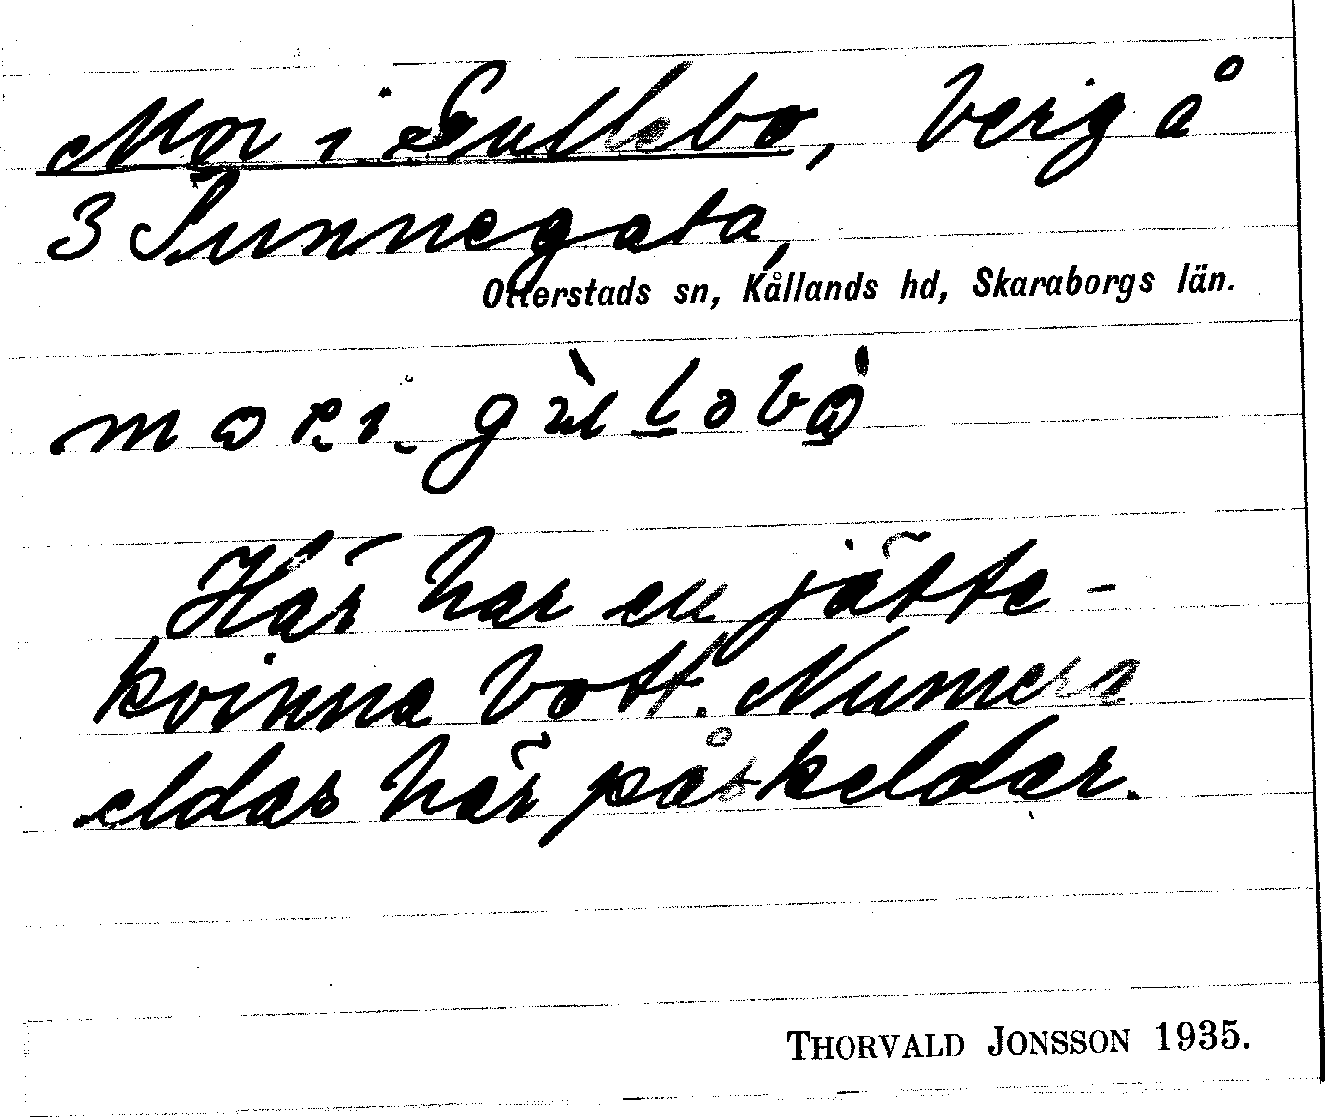 Mor i Gullebo, berg å
3 Sunnegata,
Otterstads sn, Kållands hd, Skaraborgs län.
Här har en jätte-
kvinna bott. Numera
eldas här påskeldar.
THORVALD JONSSON 1935.